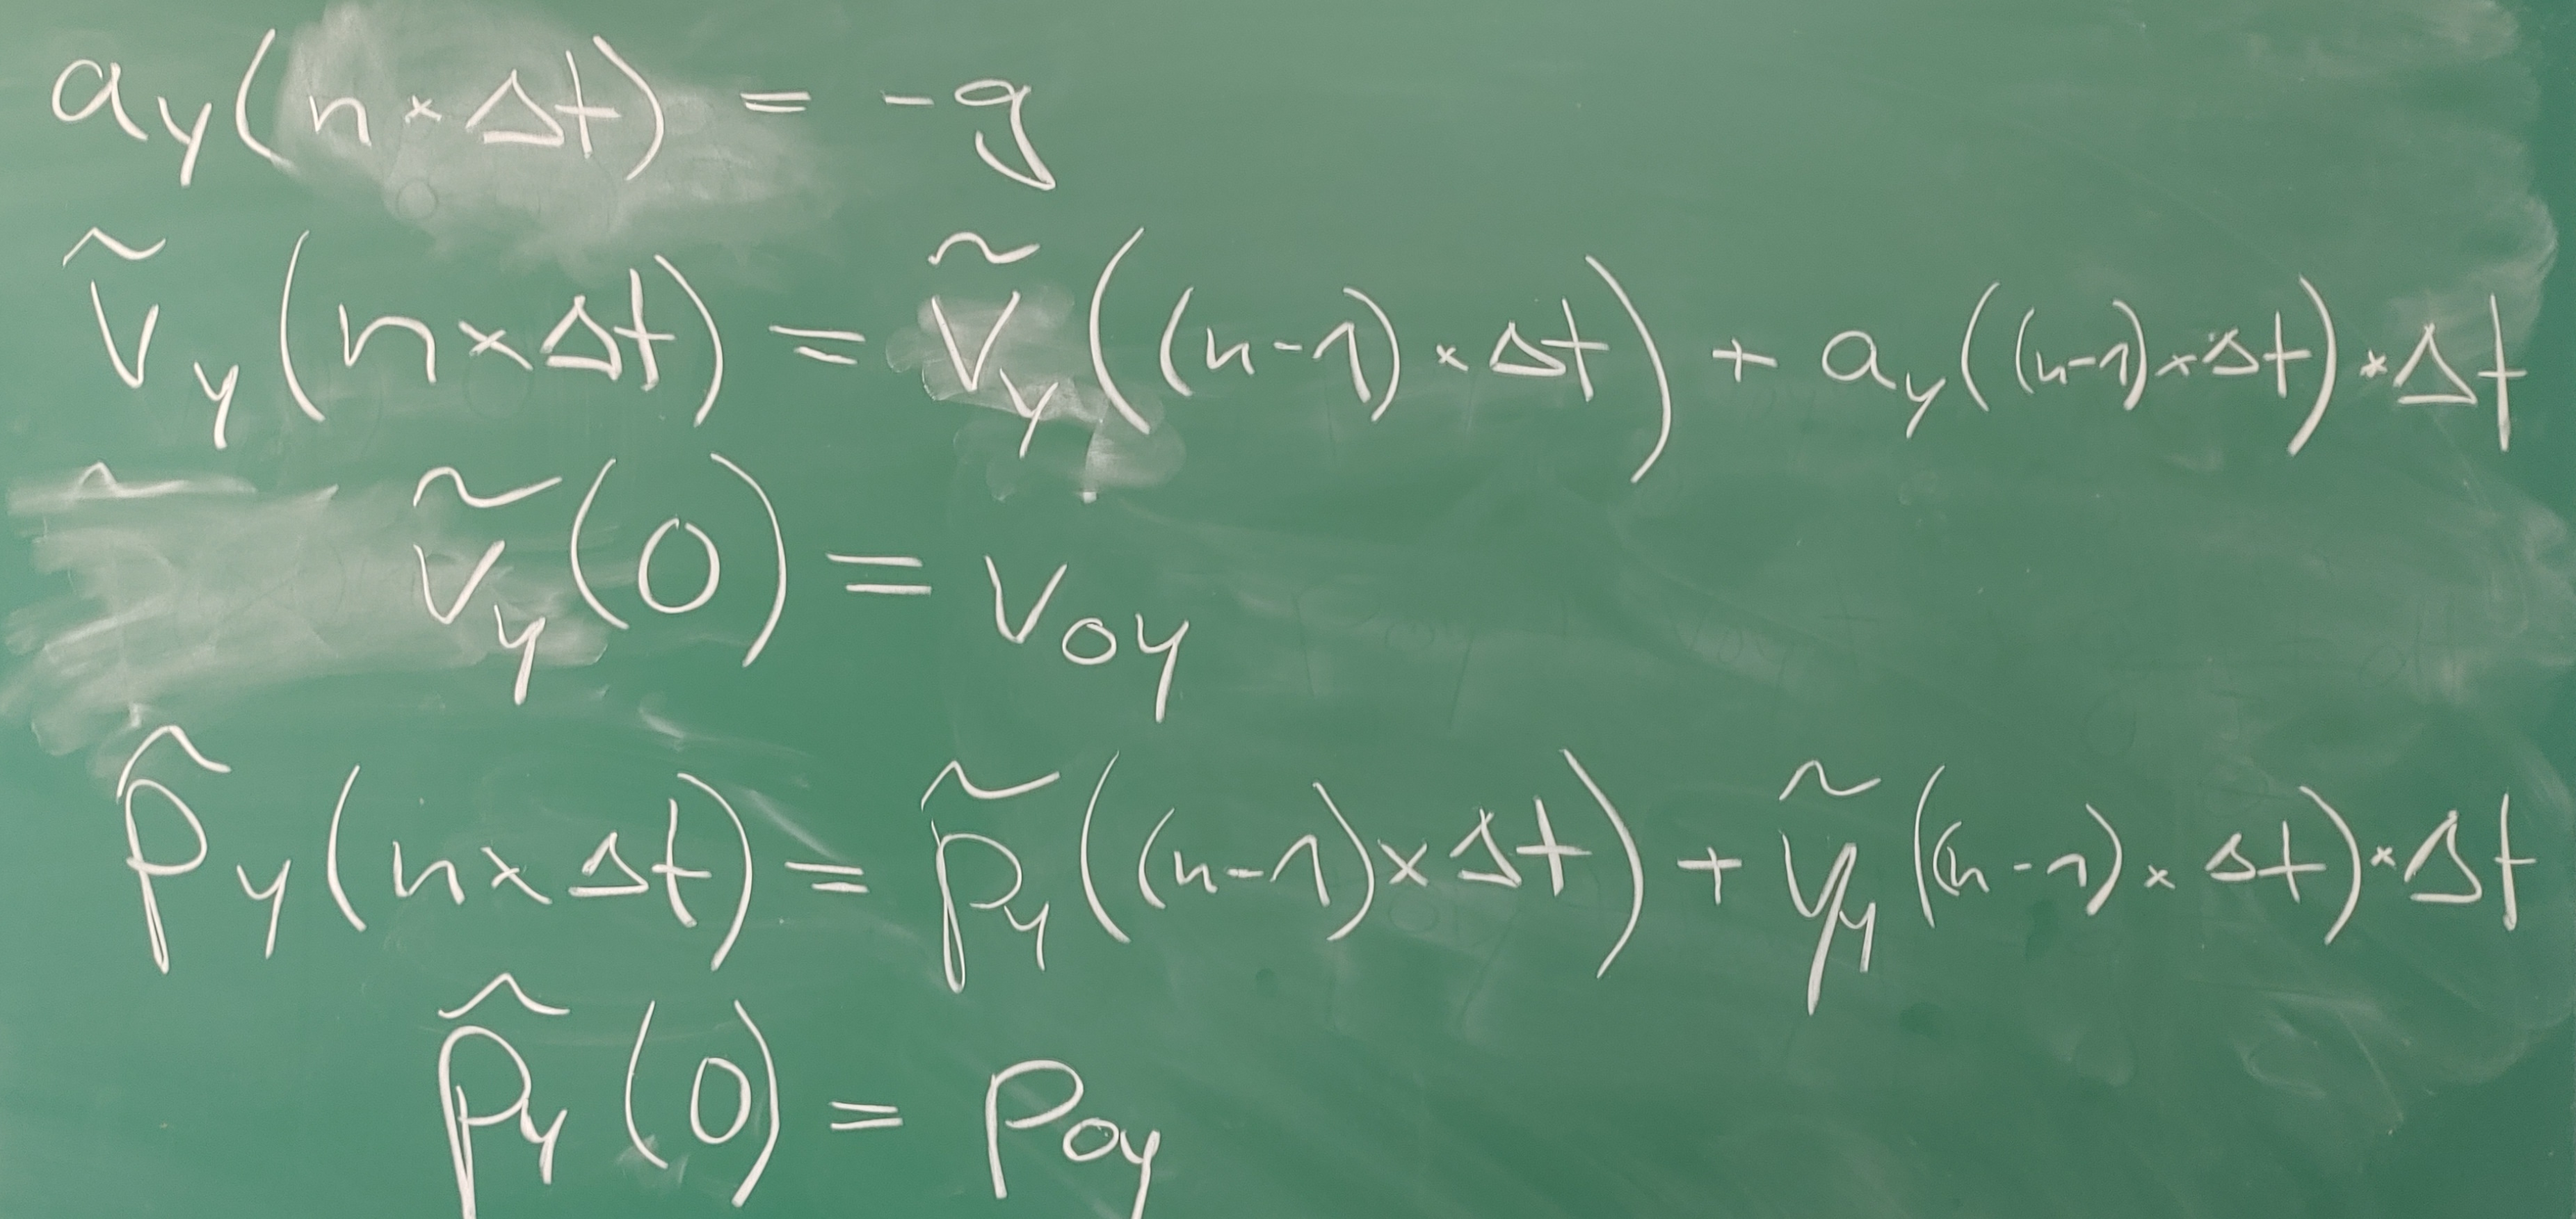 a_y(n×Δt) = -g
ṽ_y(n×Δt) = ṽ_y((n-1)×Δt) + a_y((n-1)×Δt)×Δt
ṽ_y(0) = v_0y
p̂_y(n×Δt) = p̃_y((n-1)×Δt) + ṽ_y((n-1)×Δt)×Δt
p̂_y(0) = p_0y